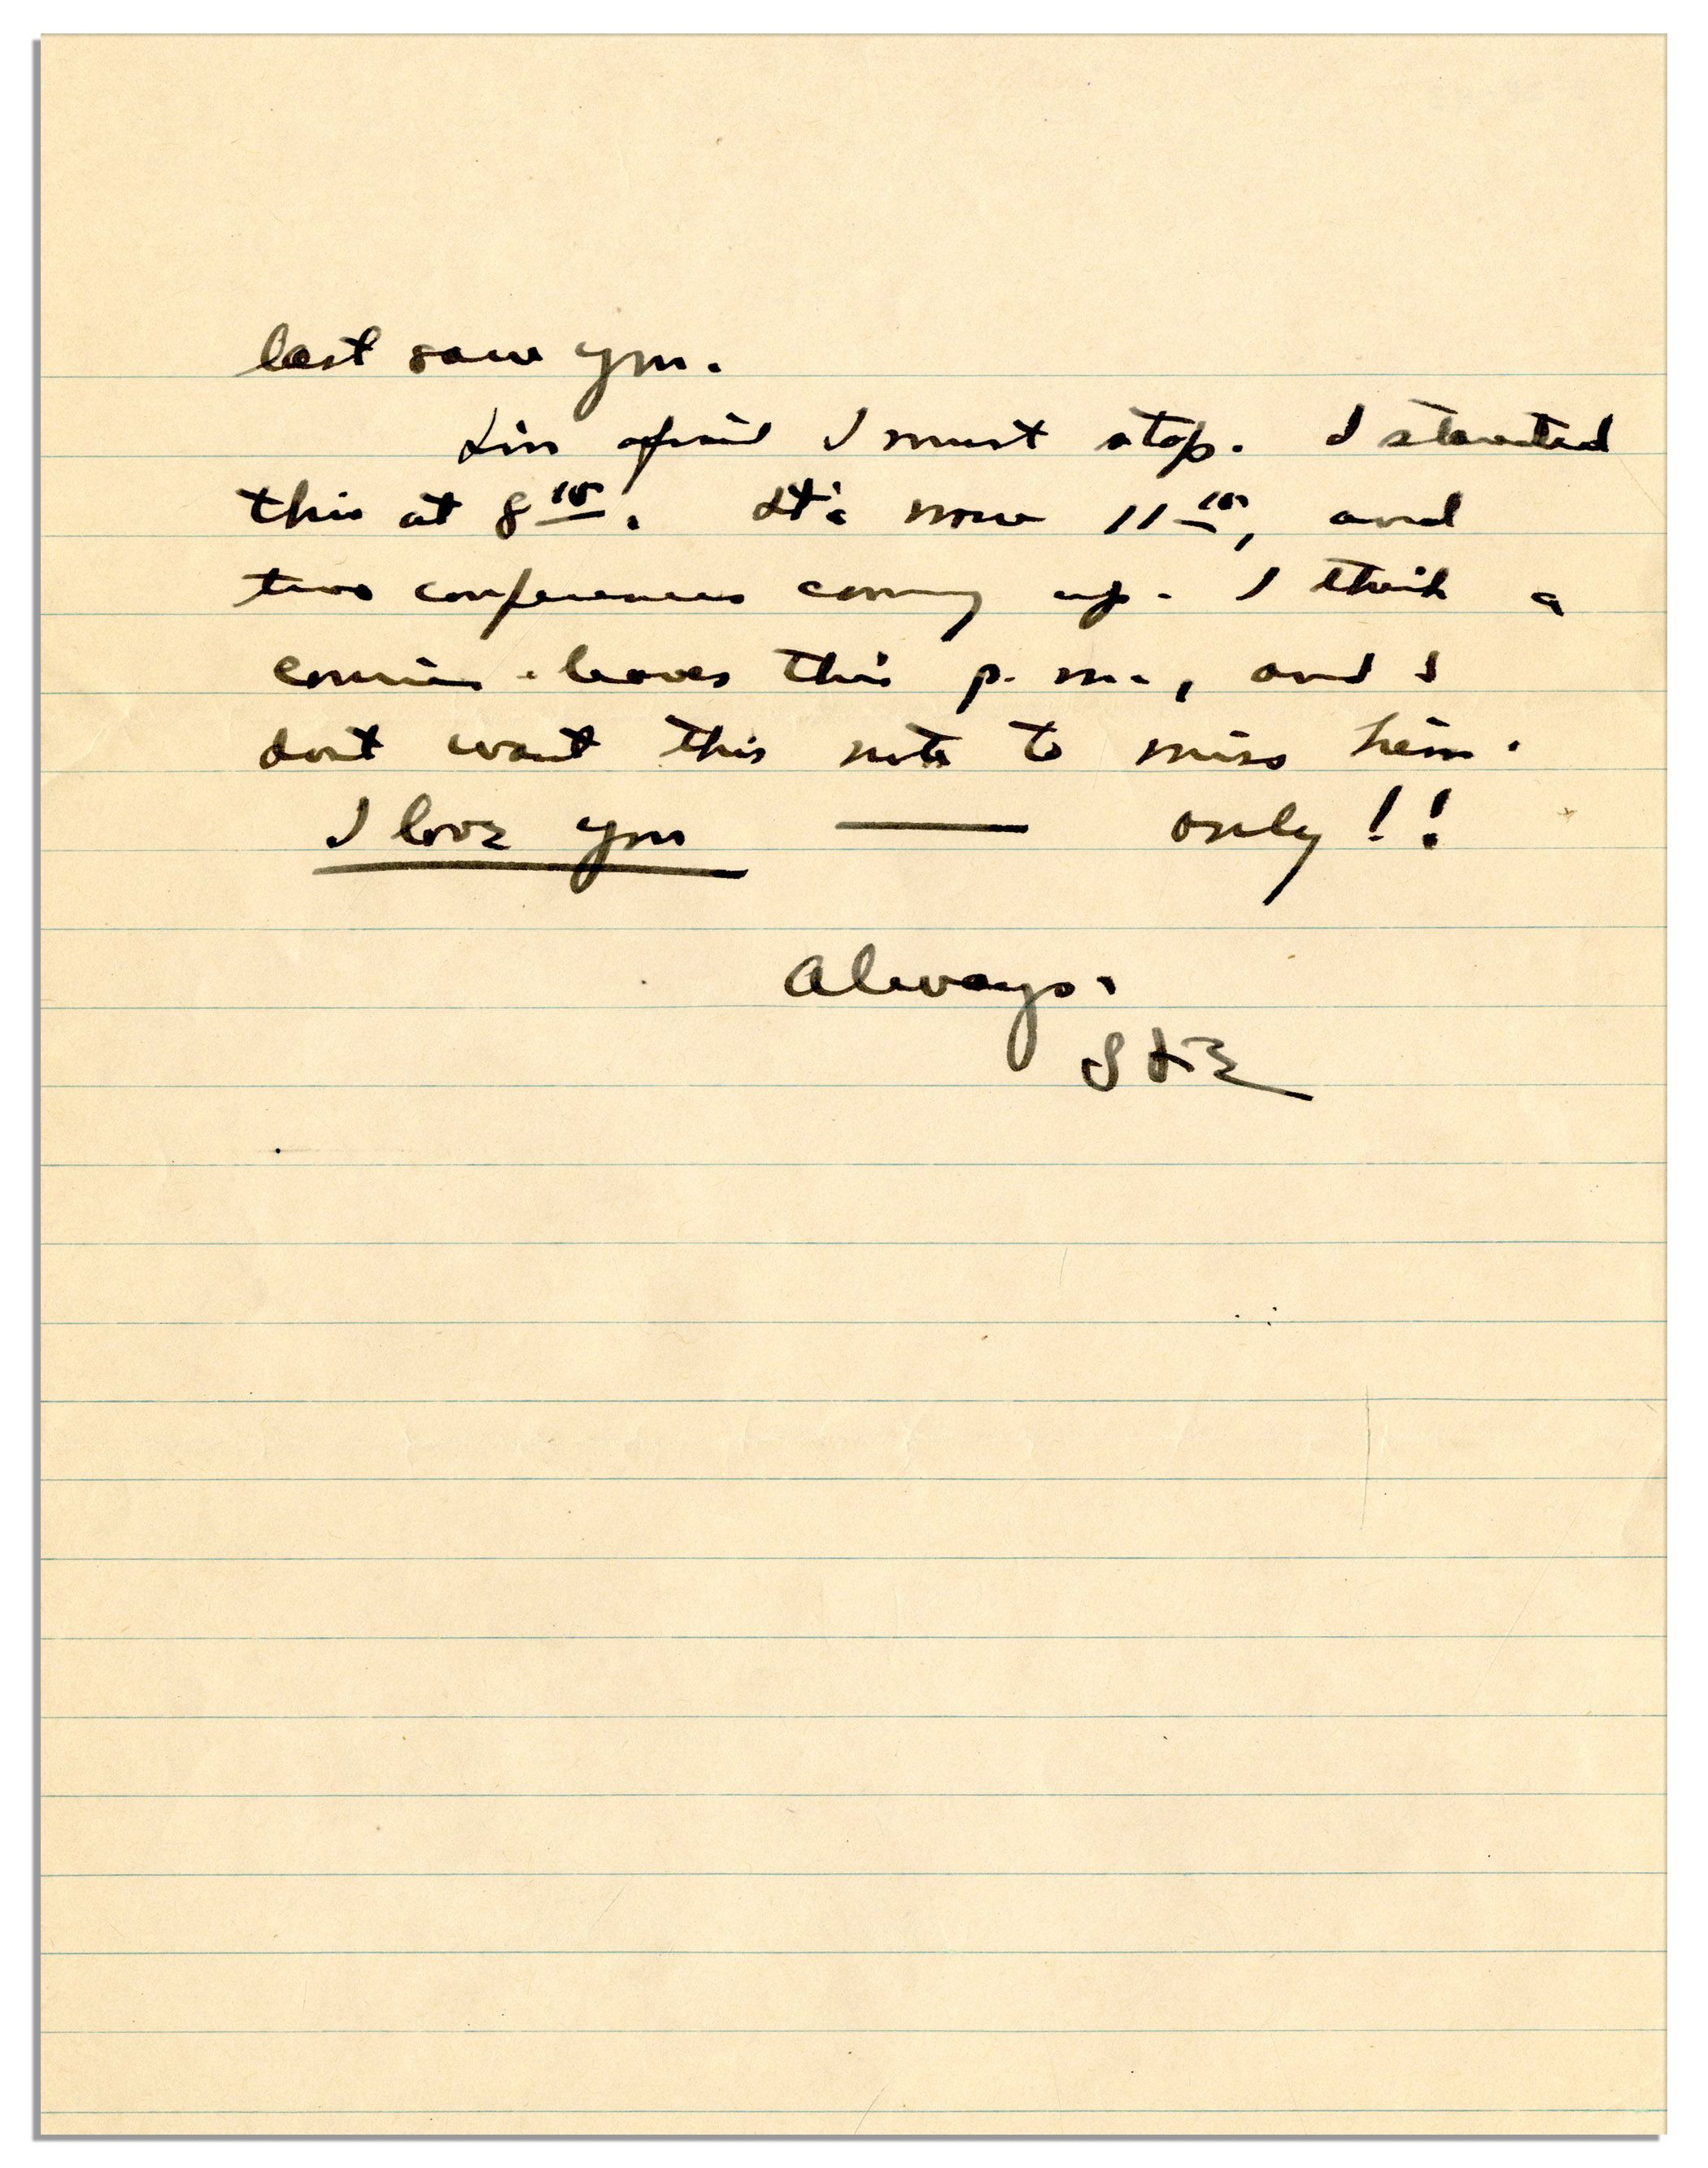 last saw you.
I'm afraid I must stop. I started
this at 8 15. It's now 11 15, and
two conferences coming up. I think a
courier leaves this p.m., and I
dont want this note to miss him.
I love you — only!!
Always.